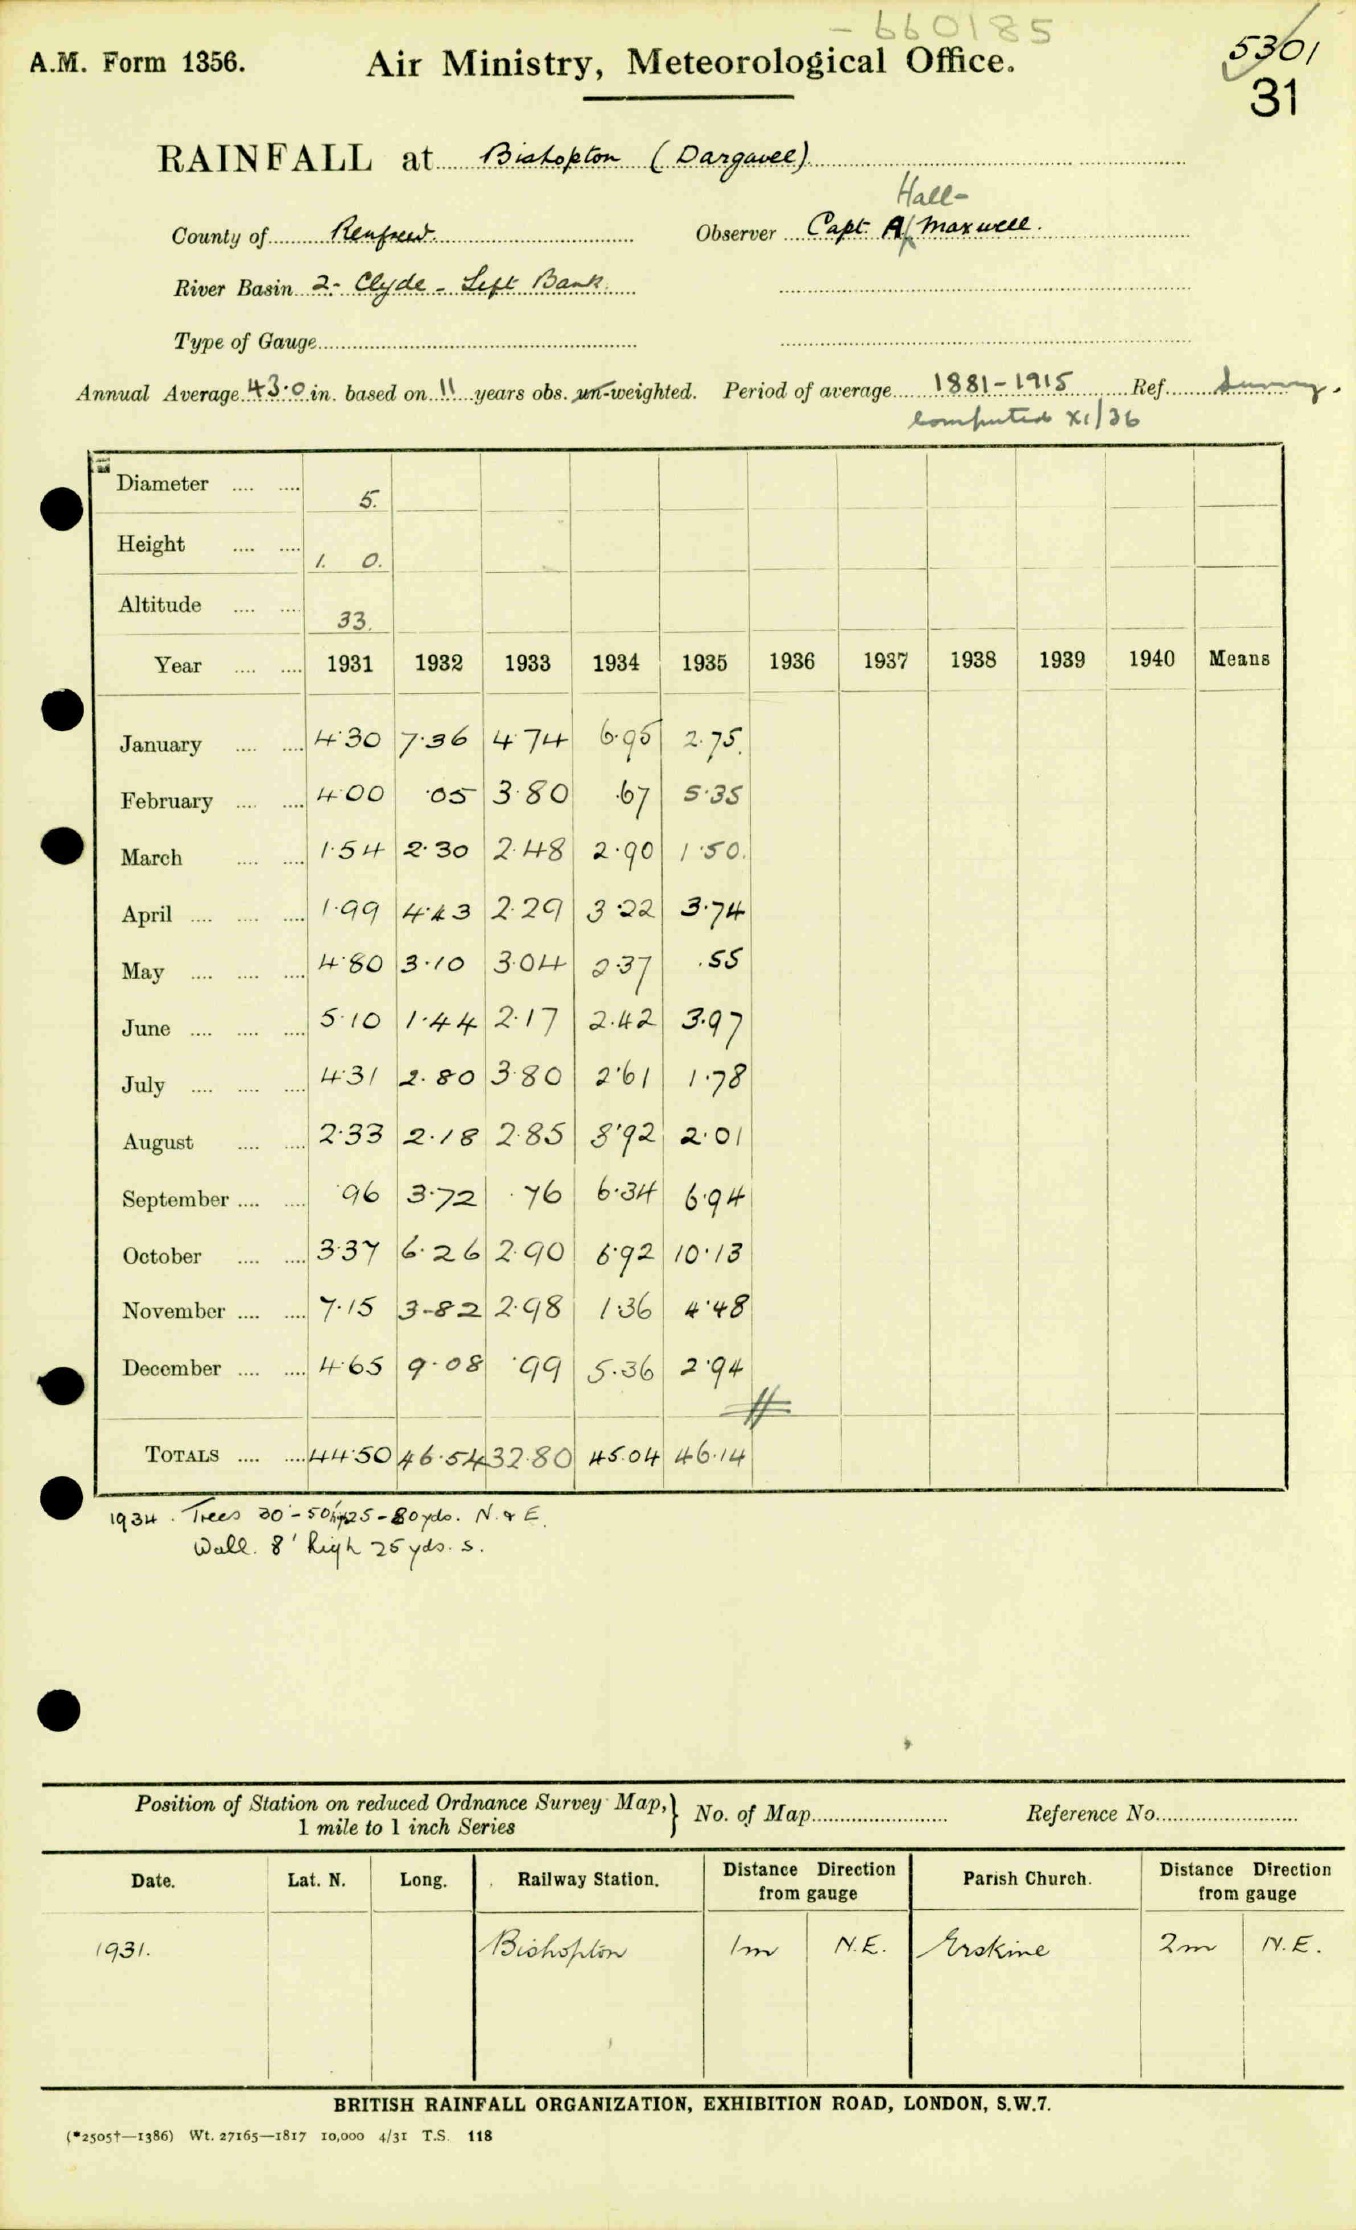 - 660185
A.M. Form 1356. Air Ministry, Meteorological Office. 5301
31
RAINFALL at Bishopton (Dargavel)
Hall-
County of Renfrew. Observer Capt. A Maxwell.
River Basin 2- Clyde - Left Bank.
Type of Gauge
Annual Average 43.0 in. based on 11 years obs. un-weighted. Period of average 1881-1915 Ref.
computed XI/36
Diameter 5.
Height 1. 0.
Altitude 33.
Year 1931 1932 1933 1934 1935 1936 1937 1938 1939 1940 Means
January 4.30 7.36 4.74 6.95 2.75.
February 4.00 .05 3.80 .67 5.35
March 1.54 2.30 2.48 2.90 1.50.
April 1.99 4.43 2.29 3.22 3.74
May 4.80 3.10 3.04 2.37 .55
June 5.10 1.44 2.17 2.42 3.97
July 4.31 2.80 3.80 2.61 1.78
August 2.33 2.18 2.85 3.92 2.01
September .96 3.72 .76 6.34 6.94
October 3.37 6.26 2.90 6.92 10.13
November 7.15 3-82 2.98 1.36 4.48
December 4.65 9.08 .99 5.36 2.94
TOTALS 44.50 46.54 32.80 45.04 46.14
1934. Trees 30'-50' 25-80yds. N. & E.
Wall. 8' high 25 yds. S.
Position of Station on reduced Ordnance Survey Map, } No. of Map Reference No.
1 mile to 1 inch Series
Date. Lat. N. Long. Railway Station. Distance Direction from gauge Parish Church. Distance Direction from gauge
1931. Bishopton 1m N.E. Erskine 2m N.E.
BRITISH RAINFALL ORGANIZATION, EXHIBITION ROAD, LONDON, S.W.7.
(*2505†—1386) Wt. 27165—1817 10,000 4/31 T.S. 118